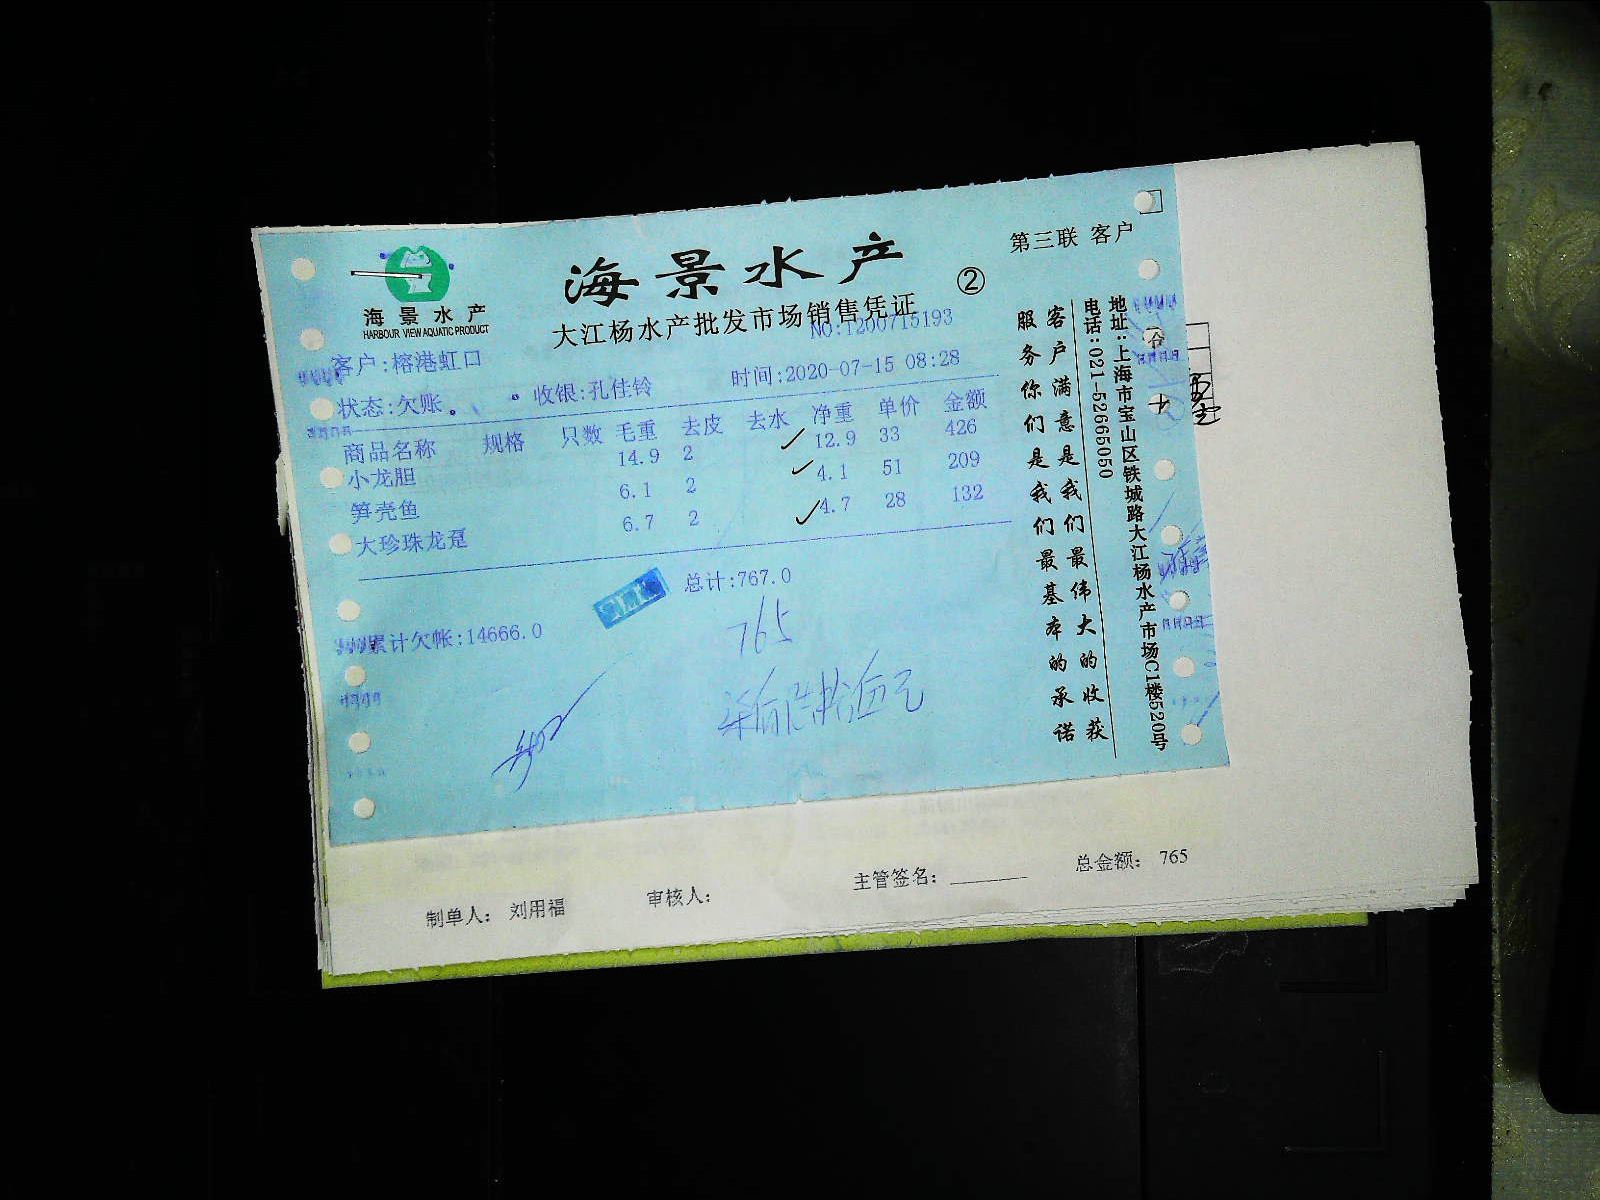 第三联 客户
海景水产
②
海景水产
HARBOUR VIEW AQUATIC PRODUCT
大江杨水产批发市场销售凭证
NO:1200715193
客户:榕港虹口
状态:欠账 收银:孔佳铃 时间:2020-07-15 08:28
商品名称 规格 只数 毛重 去皮 去水 净重 单价 金额
小龙胆 14.9 2 12.9 33 426
笋壳鱼 6.1 2 4.1 51 209
大珍珠龙趸 6.7 2 4.7 28 132
总计:767.0
累计欠帐:14666.0
765
客户满意是我们最伟大的收获
服务你们是我们最基本的承诺
地址:上海市宝山区铁城路大江杨水产市场C1楼520号
电话:021-52665050
制单人: 刘用福 审核人: 主管签名: 总金额: 765